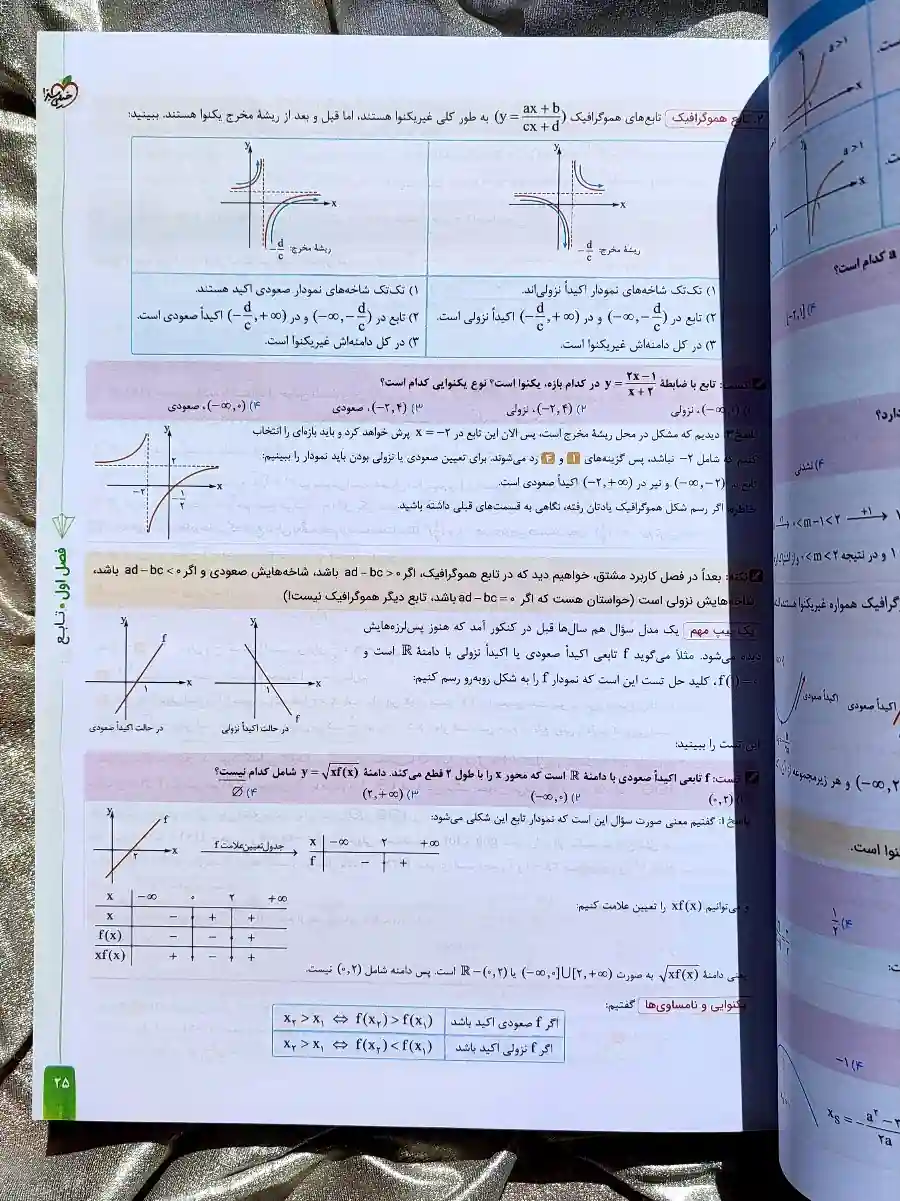 خیلی سبز
۲. تابع هموگرافیک تابع‌های هموگرافیک (y = (ax + b)/(cx + d)) به طور کلی غیریکنوا هستند، اما قبل و بعد از ریشهٔ مخرج یکنوا هستند. ببینید:
y
x
ریشهٔ مخرج: −d/c
y
x
ریشهٔ مخرج: −d/c
۱) تک‌تک شاخه‌های نمودار اکیداً نزولی‌اند.
۲) تابع در (−∞, −d/c) و در (−d/c, +∞) اکیداً نزولی است.
۳) در کل دامنه‌اش غیریکنوا است.
۱) تک‌تک شاخه‌های نمودار صعودی اکید هستند.
۲) تابع در (−∞, −d/c) و در (−d/c, +∞) اکیداً صعودی است.
۳) در کل دامنه‌اش غیریکنوا است.
تست: تابع با ضابطهٔ y = (۲x − ۱)/(x + ۲) در کدام بازه، یکنوا است؟ نوع یکنوایی کدام است؟
نزولی
۲) (−۲, ۴)، نزولی
۳) (−۲, ۴)، صعودی
۴) (−∞, ۰)، صعودی
پاسخ ۳: دیدیم که مشکل در محل ریشهٔ مخرج است، پس الان این تابع در x = −۲ پرش خواهد کرد و باید بازه‌ای را انتخاب
کنیم که شامل ۲− نباشد، پس گزینه‌های ۱ و ۴ رد می‌شوند. برای تعیین صعودی یا نزولی بودن باید نمودار را ببینیم:
تابع در (−∞, −۲) و نیز در (−۲, +∞) اکیداً صعودی است.
خاطره: اگر رسم شکل هموگرافیک یادتان رفته، نگاهی به قسمت‌های قبلی داشته باشید.
y
x
۲
−۲
۱/۲
نکته: بعداً در فصل کاربرد مشتق، خواهیم دید که در تابع هموگرافیک، اگر ad − bc > ۰ باشد، شاخه‌هایش صعودی و اگر ad − bc < ۰ باشد،
شاخه‌هایش نزولی است (حواستان هست که اگر ad − bc = ۰ باشد، تابع دیگر هموگرافیک نیست!)
یک تیپ مهم یک مدل سؤال هم سال‌ها قبل در کنکور آمد که هنوز پس‌لرزه‌هایش
دیده می‌شود. مثلاً می‌گوید f تابعی اکیداً صعودی یا اکیداً نزولی با دامنهٔ ℝ است و
f(۱) = ۰. کلید حل تست این است که نمودار f را به شکل روبه‌رو رسم کنیم:
y
f
۱
x
در حالت اکیداً نزولی
y
f
۱
x
در حالت اکیداً صعودی
این تست را ببینید:
تست: f تابعی اکیداً صعودی با دامنهٔ ℝ است که محور x را با طول ۲ قطع می‌کند. دامنهٔ y = √(xf(x)) شامل کدام نیست؟
۱) (۰, ۲)
۲) (−∞, ۰)
۳) (۲, +∞)
۴) ∅
پاسخ ۱: گفتیم معنی صورت سؤال این است که نمودار تابع این شکلی می‌شود:
y
f
۲
x
جدول تعیین علامت f
x −∞ ۲ +∞
f − +
و می‌توانیم xf(x) را تعیین علامت کنیم:
x −∞ ۰ ۲ +∞
x − + +
f(x) − − +
xf(x) + − +
یعنی دامنهٔ √(xf(x)) به صورت (−∞, ۰]∪[۲, +∞) یا ℝ − (۰, ۲) است. پس دامنه شامل (۰, ۲) نیست.
یکنوایی و نامساوی‌ها گفتیم:
اگر f صعودی اکید باشد x₂ > x₁ ⇔ f(x₂) > f(x₁)
اگر f نزولی اکید باشد x₂ > x₁ ⇔ f(x₂) < f(x₁)
فصل اول • تابع
۲۵
a > ۱
x
y
a > ۱
x
a کدام است؟
۴) [−۲, ۱]
دارد؟
۴) نشدنی
۰ < m − ۱ < ۲ +۱
۱ و در نتیجه
اکیداً صعودی
اکیداً صعودی
و هر زیرمجموعه
نوا است.
۴) ۱/۲
۴) −۱